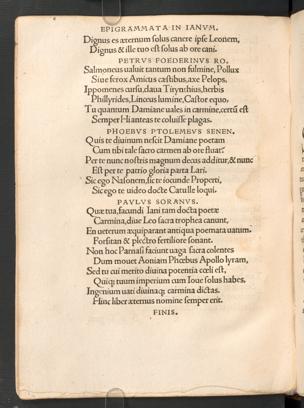 EPIGRAMMATA IN IANVM.
Dignus es æternum solus canere ipse Leonem,
Dignus & ille tuo est solus ab ore cani.
PETRVS FOEDERINVS RO.
Salmoneus ualuit tantum non fulmine, Pollux
Siue ferox Amicus cæstibus, axe Pelops,
Ippomenes cursu, claua Tirynthius, herbis
Phillyrides, Linceus lumine, Castor equo,
Tu quantum Damiane uales in carmine, certū est
Semper Hianteas te coluisse plagas.
PHOEBVS PTOLEMEVS SENEN.
Quis te diuinum nescit Damiane poetam
Cum tibi tale sacro carmen ab ore fluat?
Per te nunc nostris magnum decus additur, & nunc
Est per te patrio gloria parta Lari.
Sic ego Nasonem, sic te iocunde Properti,
Sic ego te uideo docte Catulle loqui.
PAVLVS SORANVS.
Quæ tua, facundi Iani tam docta poetæ
Carmina, diue Leo sacra trophea canunt,
En ueterum æquiparant antiqua poemata uatum.
Forsitan & plectro fertiliore sonant.
Non hoc Parnasi faciunt uaga sacra colentes
Dum mouet Aoniam Phœbus Apollo lyram,
Sed tu cui merito diuina potentia cœli est,
Quiq; tuum imperium cum Ioue solus habes,
Ingenium uati diuinaq; carmina dictas.
Hinc liber æternus nomine semper erit.
FINIS.